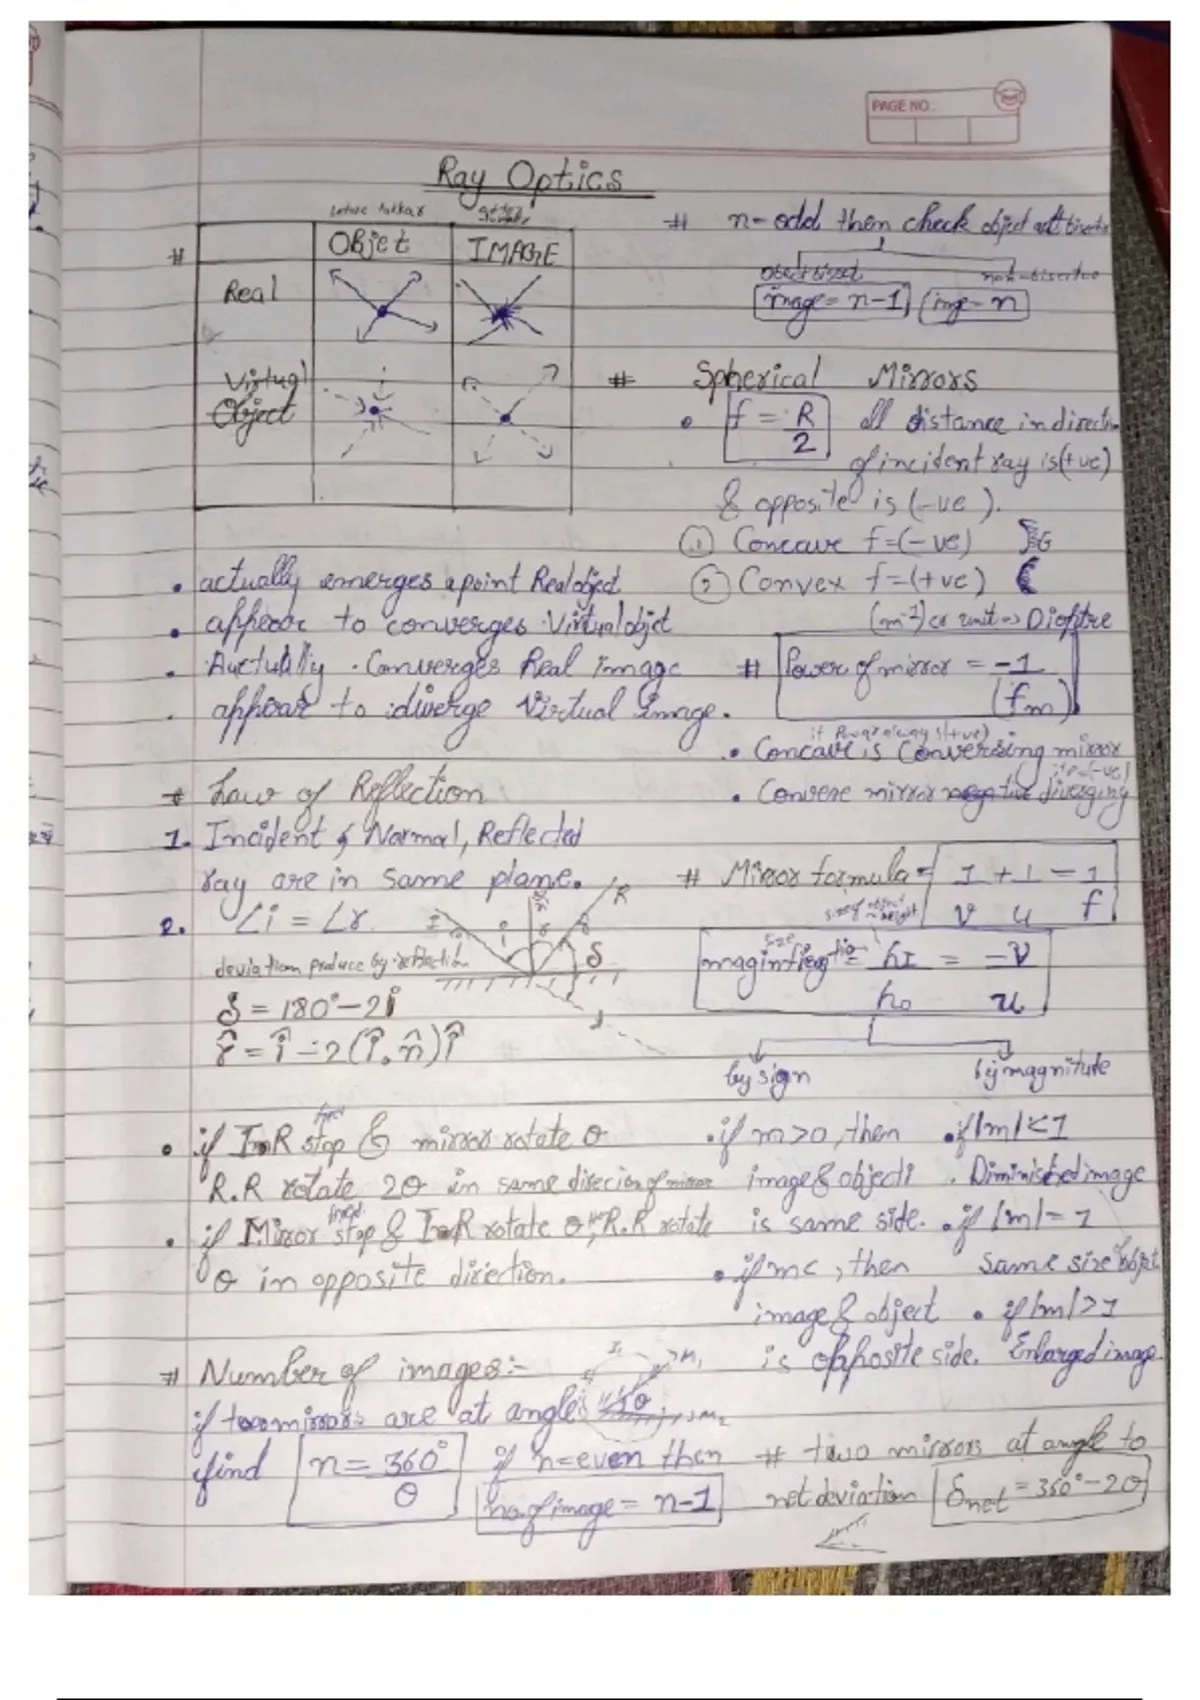 PAGE NO.:
Ray Optics
before takkar after
OBjet IMAGE
#
Real
Virtual
Object
• actually emerges a point Real object
• appear to converges Virtual objct
• Auctually . Converges Real image
. appear to diverge Virtual Image.
# Law of Reflection
1. Incident & Normal, Reflected
ray are in same plane.
2. ∠i = ∠r
I i r R δ
deviation produce by reflection
δ = 180° - 2i
r̂ = î - 2(î.n̂)î
fixed
• if InR stop & mirror rotate θ
R.R rotate 2θ in same direcion of mirror
fixed
• if Mirror stop & InR rotate θ, R.R rotate
θ in opposite direction.
# Number of images:-
I1 M1 θ M2
if two mirrors are at angle
find n = 360°/θ if n=even then
no. of image = n-1
# n-odd then check object at bisector
object bisect non-bisector
image = n-1 img = n
# Spherical Mirrors
• f = R/2 all distance in direction
of incident ray is (+ve)
& opposite is (-ve).
① Concave f=(-ve)
② Convex f=(+ve)
(m⁻¹) or unit → Dioptre
# Power of mirror = -1/(fm)
if Power always (+ve)
• Concave is Converging mirror
if P=(-ve)
• Convexe mirror negative diverging
# Mirror formula = 1/v + 1/u = 1/f
size of object height
size
maginfication = hI/ho = -v/u
by sign by magnitude
• if m>0, then • if |m|<1
image & object . Diminished image
is same side. • if |m|=1
• if m<, then same size object
image & object • if |m|>1
is opposite side. Enlarged image.
# two mirrors at angle to
net deviation δnet = 360° - 2θ